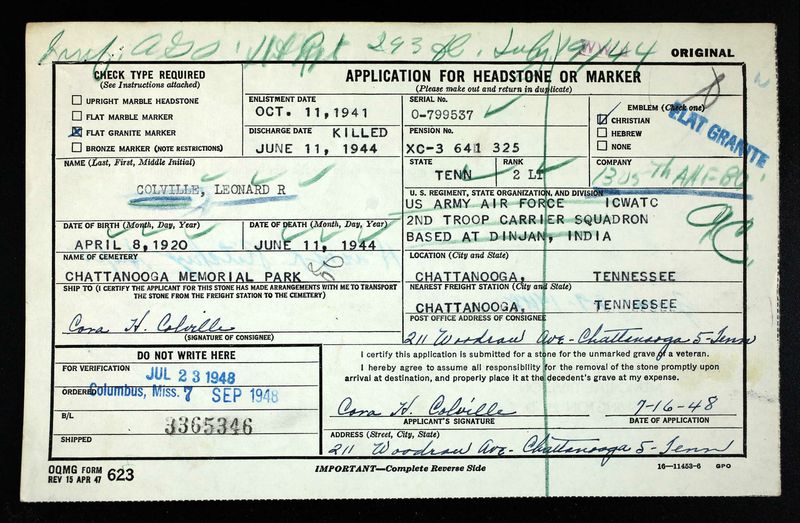 July 19/44
ORIGINAL
CHECK TYPE REQUIRED
(See Instructions attached)
UPRIGHT MARBLE HEADSTONE
FLAT MARBLE MARKER
FLAT GRANITE MARKER
BRONZE MARKER (NOTE RESTRICTIONS)
APPLICATION FOR HEADSTONE OR MARKER
(Please make out and return in duplicate)
ENLISTMENT DATE
OCT. 11,1941
DISCHARGE DATE KILLED
JUNE 11, 1944
SERIAL No.
O-799537
PENSION No.
XC-3 641 325
EMBLEM (Check one)
CHRISTIAN
HEBREW
NONE
FLAT GRANITE
NAME (Last, First, Middle Initial)
COLVILLE, LEONARD R
STATE
TENN
RANK
2 LT
COMPANY
U. S. REGIMENT, STATE ORGANIZATION, AND DIVISION
US ARMY AIR FORCE ICWATC
2ND TROOP CARRIER SQUADRON
BASED AT DINJAN, INDIA
DATE OF BIRTH (Month, Day, Year)
APRIL 8,1920
DATE OF DEATH (Month, Day, Year)
JUNE 11, 1944
NAME OF CEMETERY
CHATTANOOGA MEMORIAL PARK
LOCATION (City and State)
CHATTANOOGA, TENNESSEE
SHIP TO (I CERTIFY THE APPLICANT FOR THIS STONE HAS MADE ARRANGEMENTS WITH ME TO TRANSPORT
THE STONE FROM THE FREIGHT STATION TO THE CEMETERY)
Cora H. Colville
(SIGNATURE OF CONSIGNEE)
NEAREST FREIGHT STATION (City and State)
CHATTANOOGA, TENNESSEE
POST OFFICE ADDRESS OF CONSIGNEE
211 Woodrow Ave- Chattanooga 5-Tenn
DO NOT WRITE HERE
FOR VERIFICATION
JUL 23 1948
ORDERED
Columbus, Miss. 7 SEP 1948
B/L
3365346
SHIPPED
I certify this application is submitted for a stone for the unmarked grave of a veteran.
I hereby agree to assume all responsibility for the removal of the stone promptly upon
arrival at destination, and properly place it at the decedent's grave at my expense.
Cora H. Colville 7-16-48
APPLICANT'S SIGNATURE DATE OF APPLICATION
ADDRESS (Street, City, State)
211 Woodrow Ave- Chattanooga 5-Tenn
OQMG FORM
REV 15 APR 47 623
IMPORTANT—Complete Reverse Side
16—11453-6 GPO